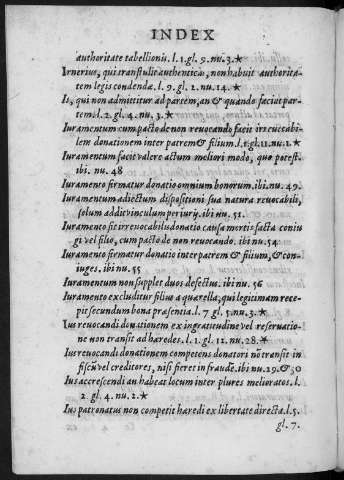 INDEX
authoritate tabellionis. l. 1. gl. 9. nu. 3. *
Irnerius, qui transtulit authenticas, non habuit authorita-
tem legis condendæ. l. 9. gl. 2. nu. 14. *
Is, qui non admittitur ad partem, an & quando faciat par-
tem. l. 2. gl. 4. nu. 3. *
Iuramentum cum pacto de non reuocando facit irreuocabi-
lem donationem inter patrem & filium. l. 1. gl. 11. nu. 1. *
Iuramentum facit valere actum meliori modo, quo potest.
ibi. nu. 48
Iuramento firmatur donatio omnium bonorum. ibi. nu. 49.
Iuramentum adiectum dispositioni sua natura reuocabili,
solum addit vinculum periurij. ibi nu. 51.
Iuramento fit irreuocabilis donatio causa mortis facta coniu
gi vel filio, cum pacto de non reuocando. ibi nu. 54.
Iuramento firmatur donatio inter patrem & filium, & con-
iuges. ibi nu. 55
Iuramentum non supplet duos defectus. ibi nu. 56
Iuramento excluditur filius a quarella, qui legitimam rece-
pit secundum bona præsentia. l. 7 gl. 5. nu. 3. *
Ius reuocandi donationem ex ingratitudine vel reseruatio-
ne non transit ad hæredes. l. 1. gl. 12. nu. 28. *
Ius reuocandi donationem competens donatori nō transit in
fiscū vel creditores, nisi fieret in fraudē. ibi nu. 29. & 30
Ius accrescendi an habeat locum inter plures melioratos. l.
2. gl. 4. nu. 2. *
Ius patronatus non competit hæredi ex libertate directa. l. 5.
gl. 7.